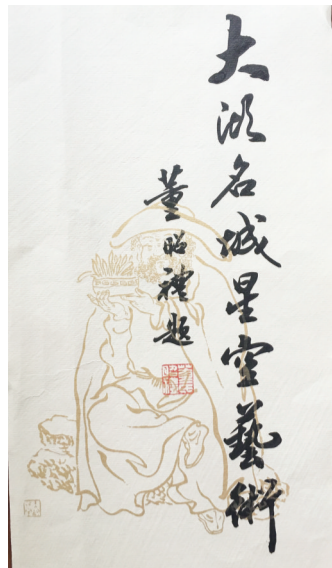 大湖名城星空藝術
董昭禮題